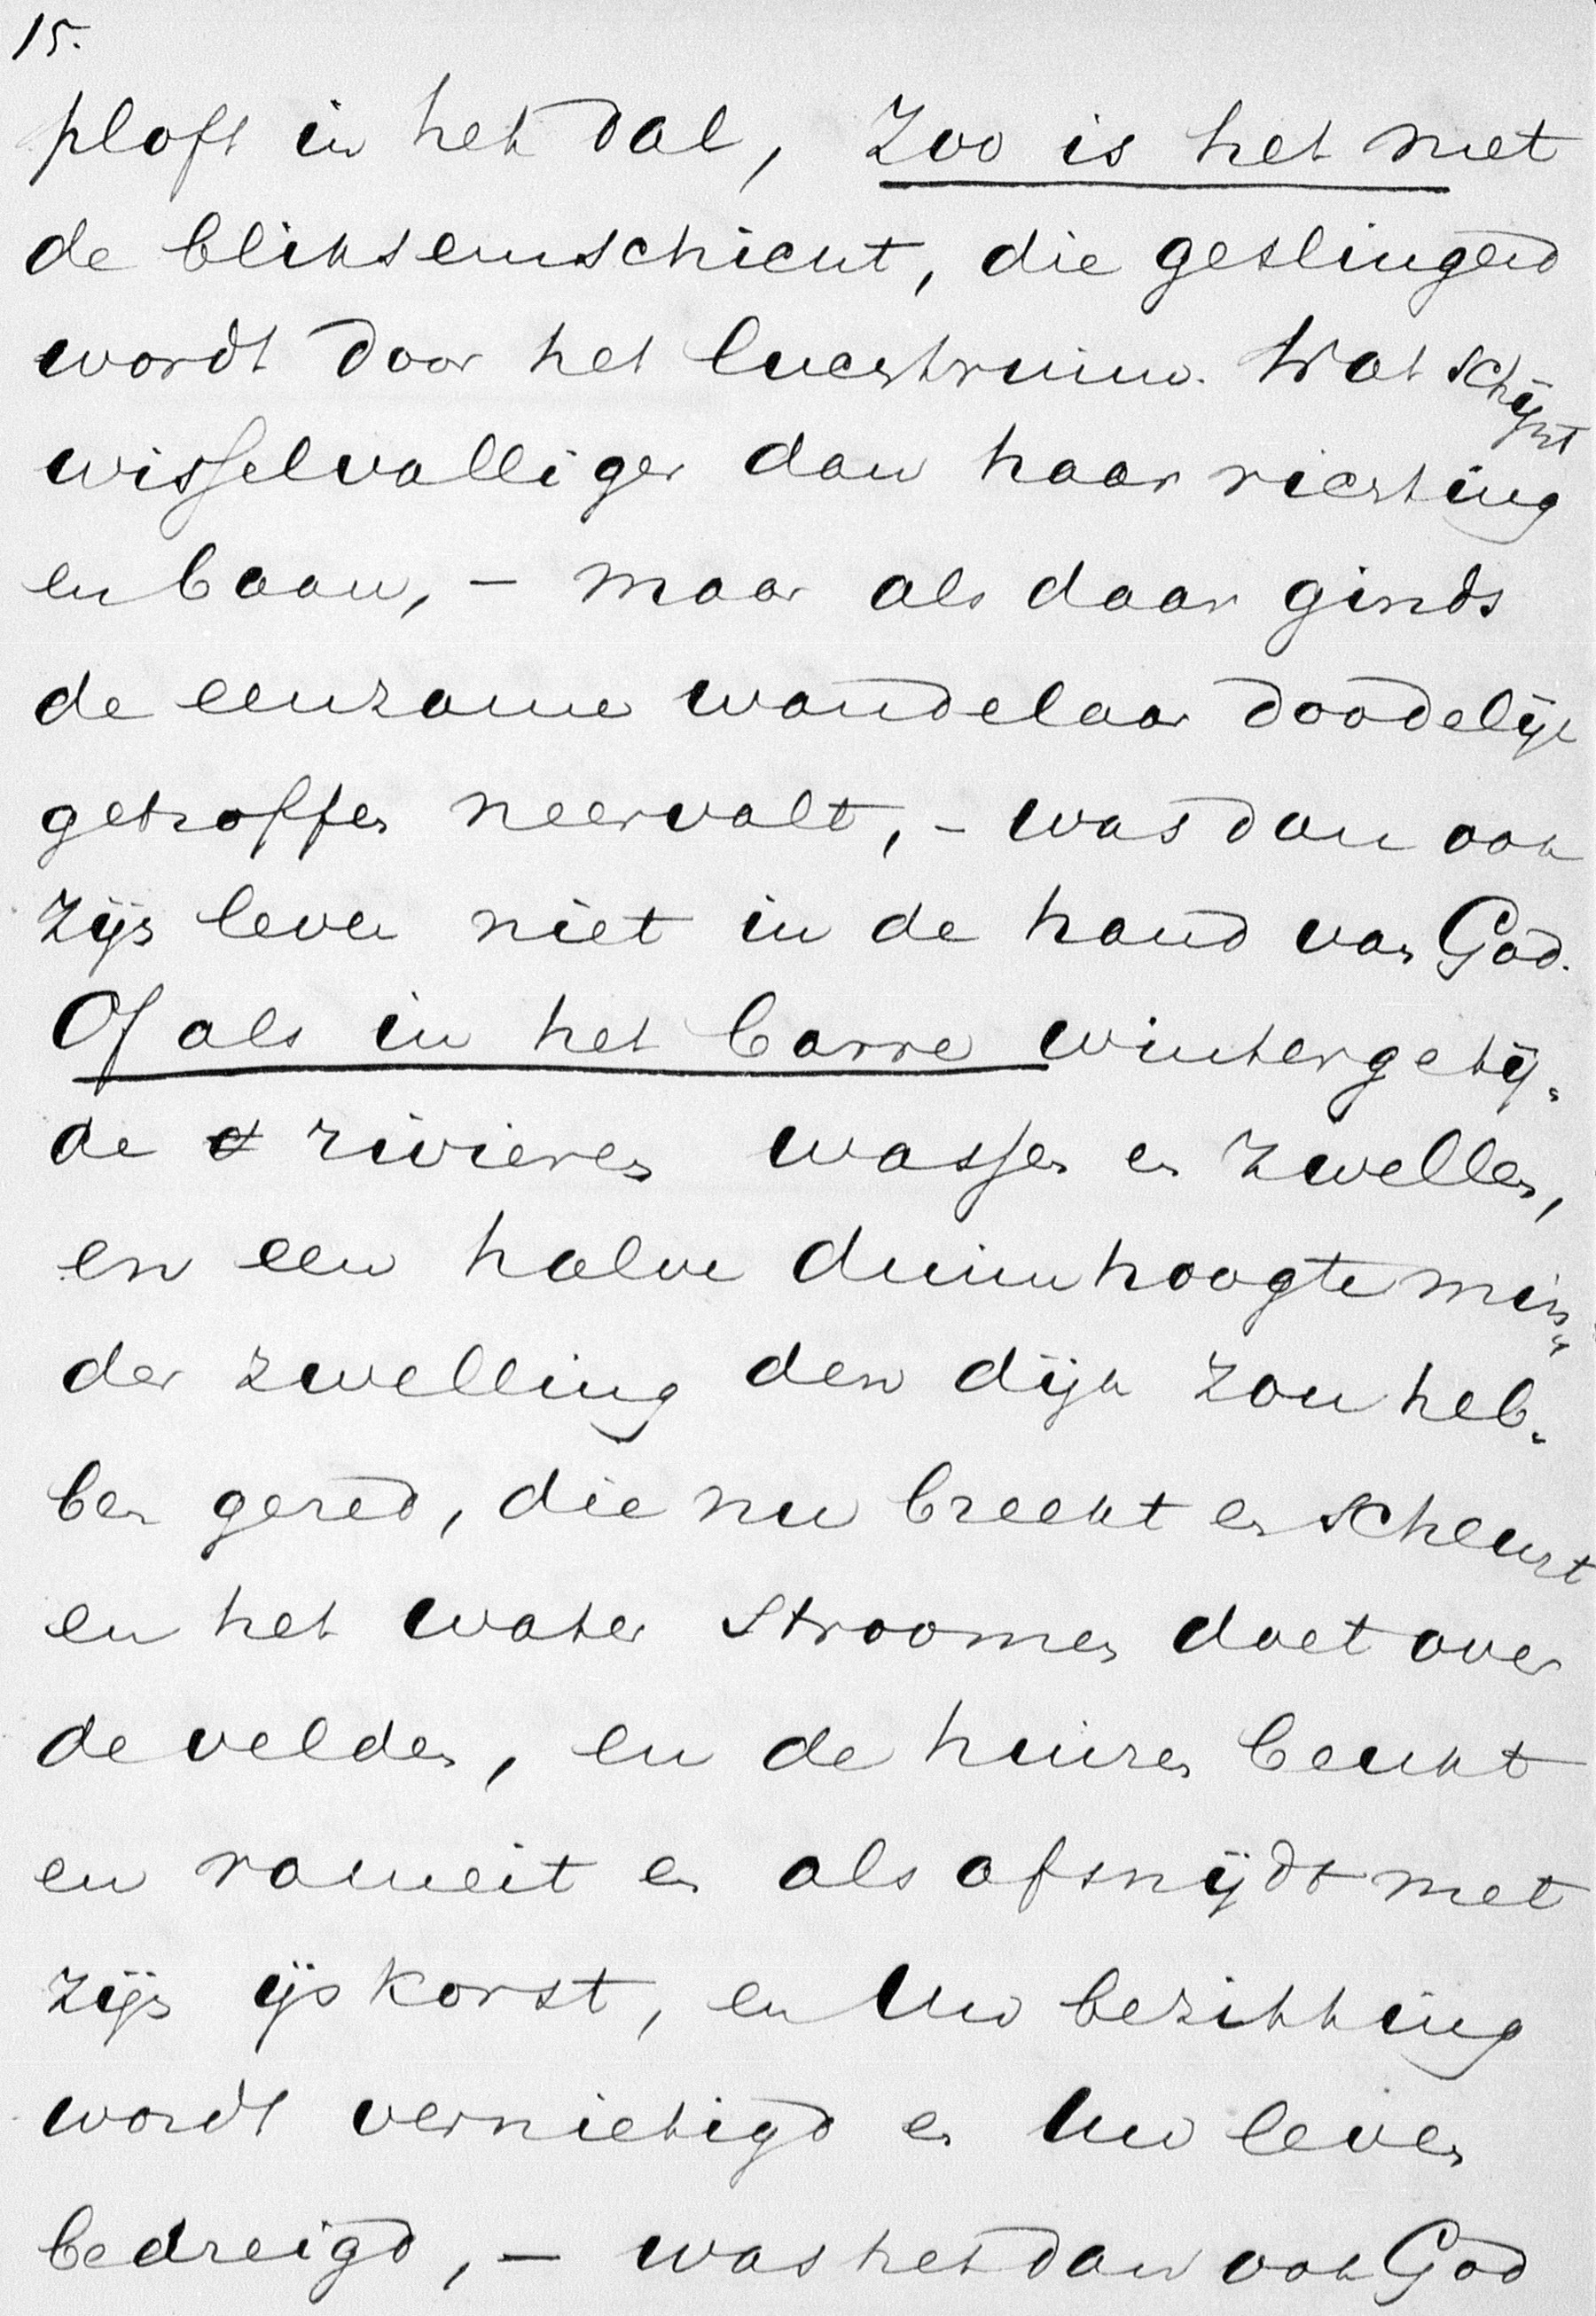 15.
ploft in het dal, Zoo is het met
de bliksemschicht, die geslingerd
wordt door het luchtruim. Wat schijnt
wisselvalliger dan haar richting
en baan, – maar als daar ginds
de eenzame wandelaar doodelijk
getroffen neervalt, – was dan ook
zijn leven niet in de hand van God.
Of als in het barre wintergetij-
de rivieren wassen en zwellen,
en een halve duimhoogte min-
der zwelling den dijk zou heb-
ben gered, die nu breekt en scheurt
en het water stroomen doet over
de velden, en de huizen beukt
en rameit en als afsnijdt met
zijn ijskorst, en Uw bezitting
wordt vernietigd en Uw leven
bedreigd, – was het dan ook God